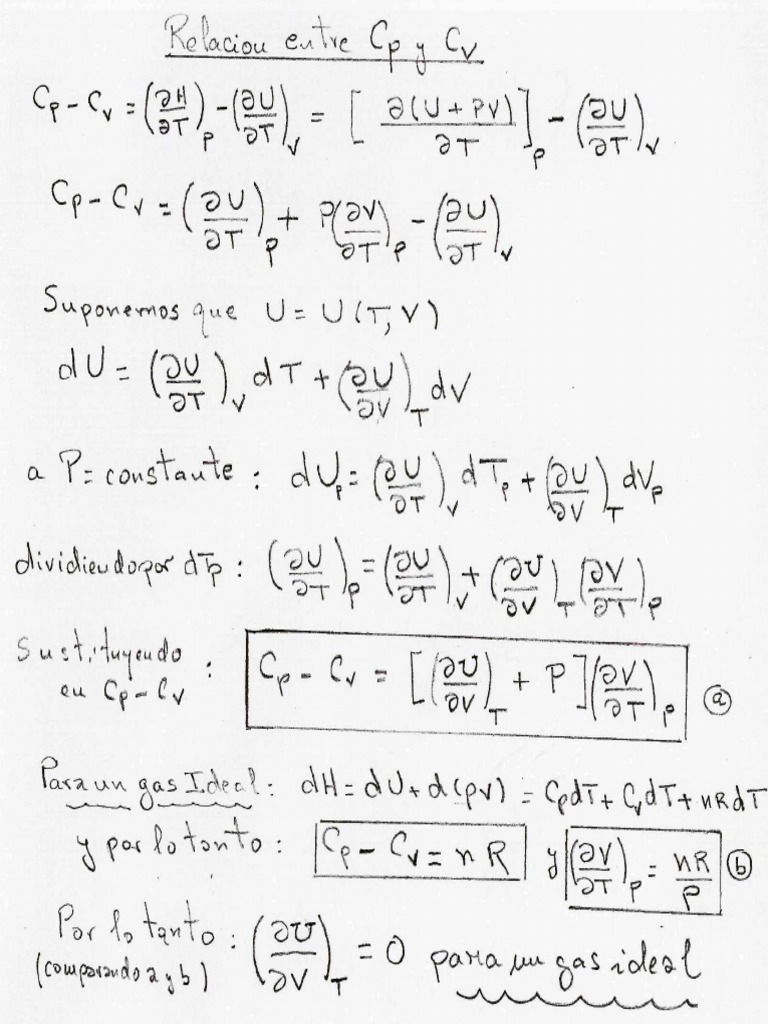 Relacion entre Cp y Cv
Cp - Cv = (∂H/∂T)p - (∂U/∂T)v = [∂(U + PV)/∂T]p - (∂U/∂T)v
Cp - Cv = (∂U/∂T)p + P(∂V/∂T)p - (∂U/∂T)v
Suponemos que U = U(T, V)
dU = (∂U/∂T)v dT + (∂U/∂V)T dV
a P = constante : dUp = (∂U/∂T)v dTp + (∂U/∂V)T dVp
dividiendo por dTp : (∂U/∂T)p = (∂U/∂T)v + (∂U/∂V)T (∂V/∂T)p
Sustituyendo
en Cp - Cv : Cp - Cv = [(∂U/∂V)T + P](∂V/∂T)p ⓐ
Para un gas Ideal : dH = dU + d(PV) = CpdT + CvdT + nRdT
y por lo tanto : Cp - Cv = nR y (∂V/∂T)p = nR/P ⓑ
Por lo tanto : (∂U/∂V)T = 0 para un gas ideal
(comparando a y b)